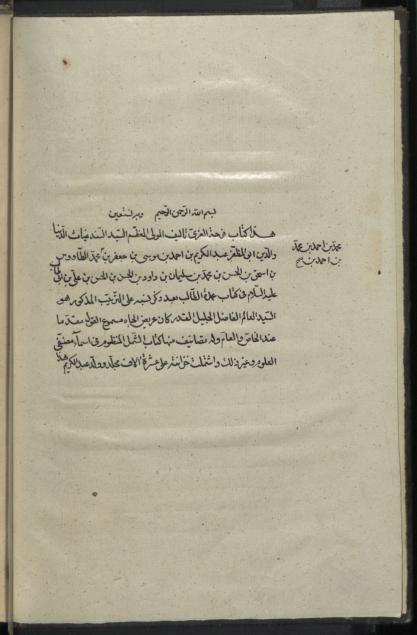 بسم الله الرحمن الرحيم وبه نستعين
هذا كتاب فرحة الغري تاليف المولى المعظم السيد السند غياث الدنيا
والدين ابي المظفر عبد الكريم بن احمد بن موسى بن جعفر بن محمد الطاووس
بن اسحق بن الحسن بن محمد بن سليمان بن داود بن الحسن بن الحسن بن علي بن ابي طالب
عليه السلام في كتاب عمدة الطالب بعد ذكر نسبه على الترتيب المذكور هو
السيد العالم الفاضل الجليل القدر كان عريض الجاه مسموع القول مقدما
عند الخاص والعام وله تصانيف منها كتاب الشمل المنظوم في اسماء مصنفي
العلوم وغير ذلك واشتملت خزانته على عشرة آلاف مجلد وولد عبد الكريم هذا
محمد بن احمد بن محمد
بن احمد بن